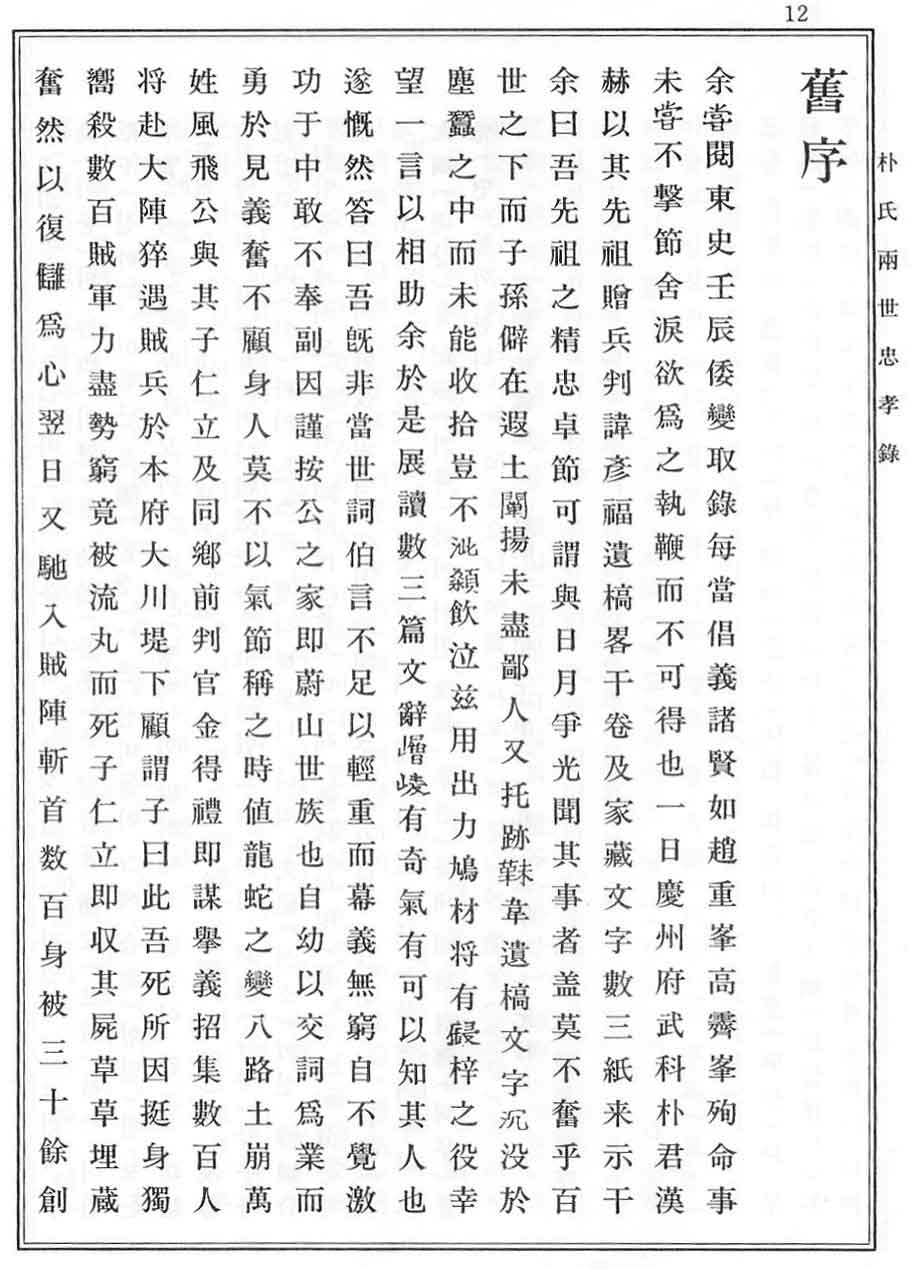 12
朴氏兩世忠孝錄
舊序
余嘗閱東史壬辰倭變取錄每當倡義諸賢如趙重峯高霽峯殉命事
未嘗不擊節舍淚欲爲之執鞭而不可得也一日慶州府武科朴君漢
赫以其先祖贈兵判諱彥福遺槁畧干卷及家藏文字數三紙来示干
余曰吾先祖之精忠卓節可謂與日月爭光聞其事者盖莫不奮乎百
世之下而子孫僻在遐土闡揚未盡鄙人又托跡韎韋遺槁文字沉没於
塵蠹之中而未能收拾豈不泚顙飮泣兹用出力鳩材将有鋟梓之役幸
望一言以相助余於是展讀數三篇文辭嶒崚有奇氣有可以知其人也
遂慨然答曰吾旣非當世詞伯言不足以輕重而幕義無窮自不覺激
功于中敢不奉副因謹按公之家即蔚山世族也自幼以交詞爲業而
勇於見義奮不顧身人莫不以氣節稱之時値龍蛇之變八路土崩萬
姓風飛公與其子仁立及同鄕前判官金得禮即謀擧義招集數百人
将赴大陣猝遇賊兵於本府大川堤下顧謂子曰此吾死所因挺身獨
嚮殺數百賊軍力盡勢窮竟被流丸而死子仁立即収其屍草草埋蔵
奮然以復讎爲心翌日又馳入賊陣斬首数百身被三十餘創